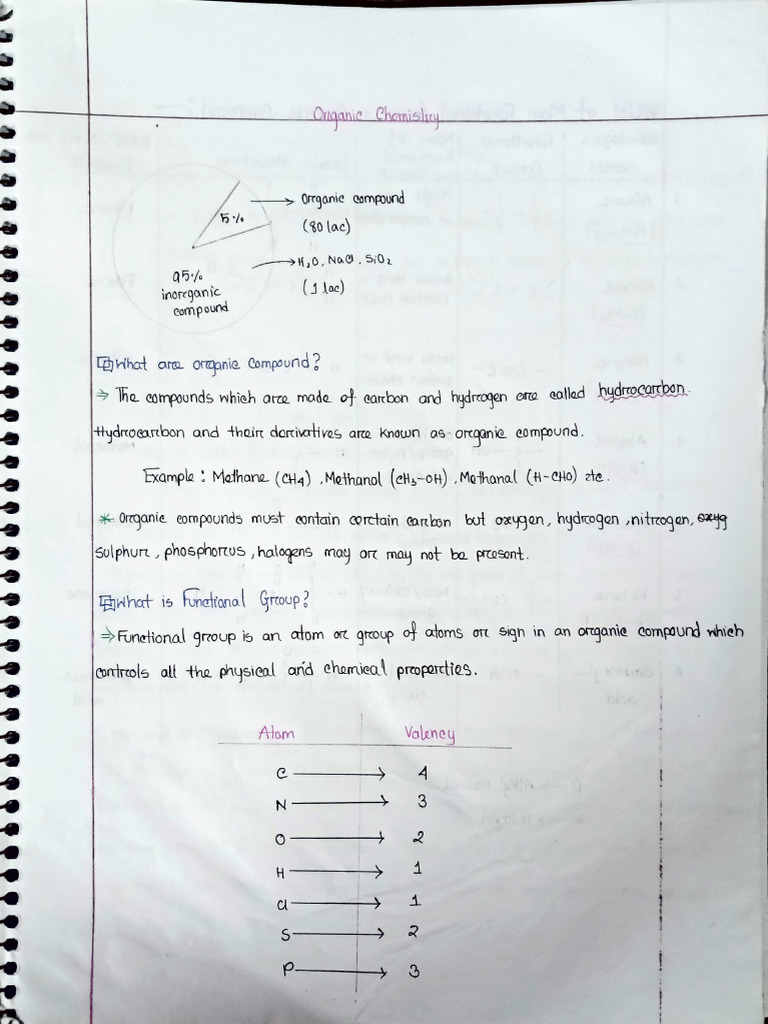 Organic Chemistry
5%
Organic compound
(80 lac)
H2O, NaCl, SiO2
(1 lac)
95%
inorganic
compound
What are organic compound?
⇒ The compounds which are made of carbon and hydrogen are called hydrocarbon.
Hydrocarbon and their derivatives are known as organic compound.
Example : Methane (CH4) , Methanol (CH3-OH) , Methanal (H-CHO) etc.
* Organic compounds must contain certain carbon but oxygen, hydrogen, nitrogen, oxyg
sulphur, phosphorus, halogens may or may not be present.
What is Functional Group?
⇒ Functional group is an atom or group of atoms or sign in an organic compound which
controls all the physical and chemical properties.
Atom Valency
C → 4
N → 3
O → 2
H → 1
Cl → 1
S → 2
P → 3